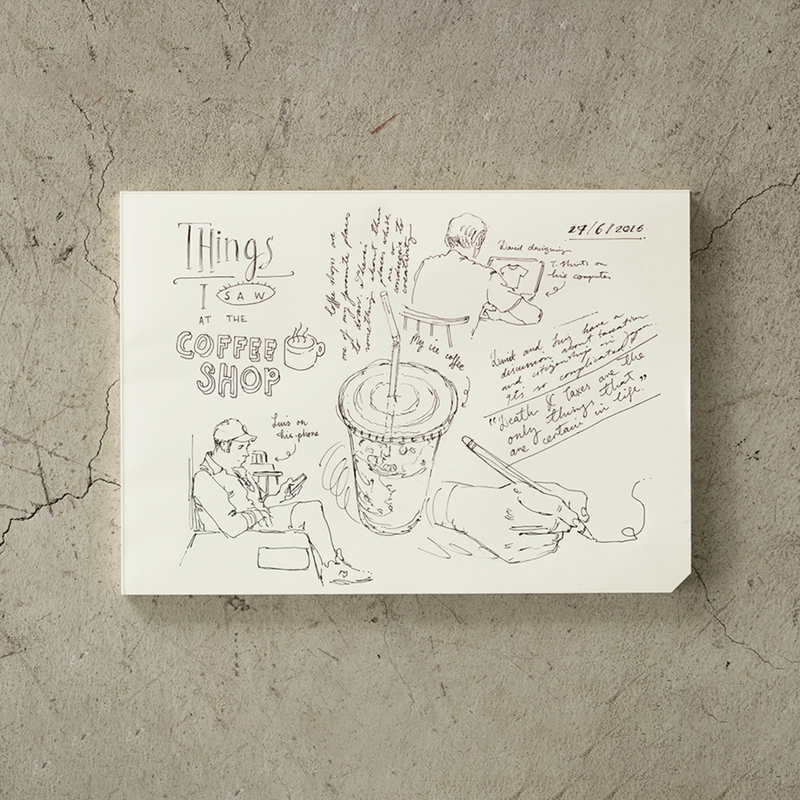 Things
I SAW
AT THE
COFFEE
SHOP
Coffee shops are
one of my favorite places
to draw. There's
something about
27/6/2016
David designing
T. Shirts on
his computer
My ice coffee
David and Luis have a
discussion about taxation
and citizenship in
It's so complicated
"Death & Taxes are the
only things that
are certain in life."
Luis on
his phone